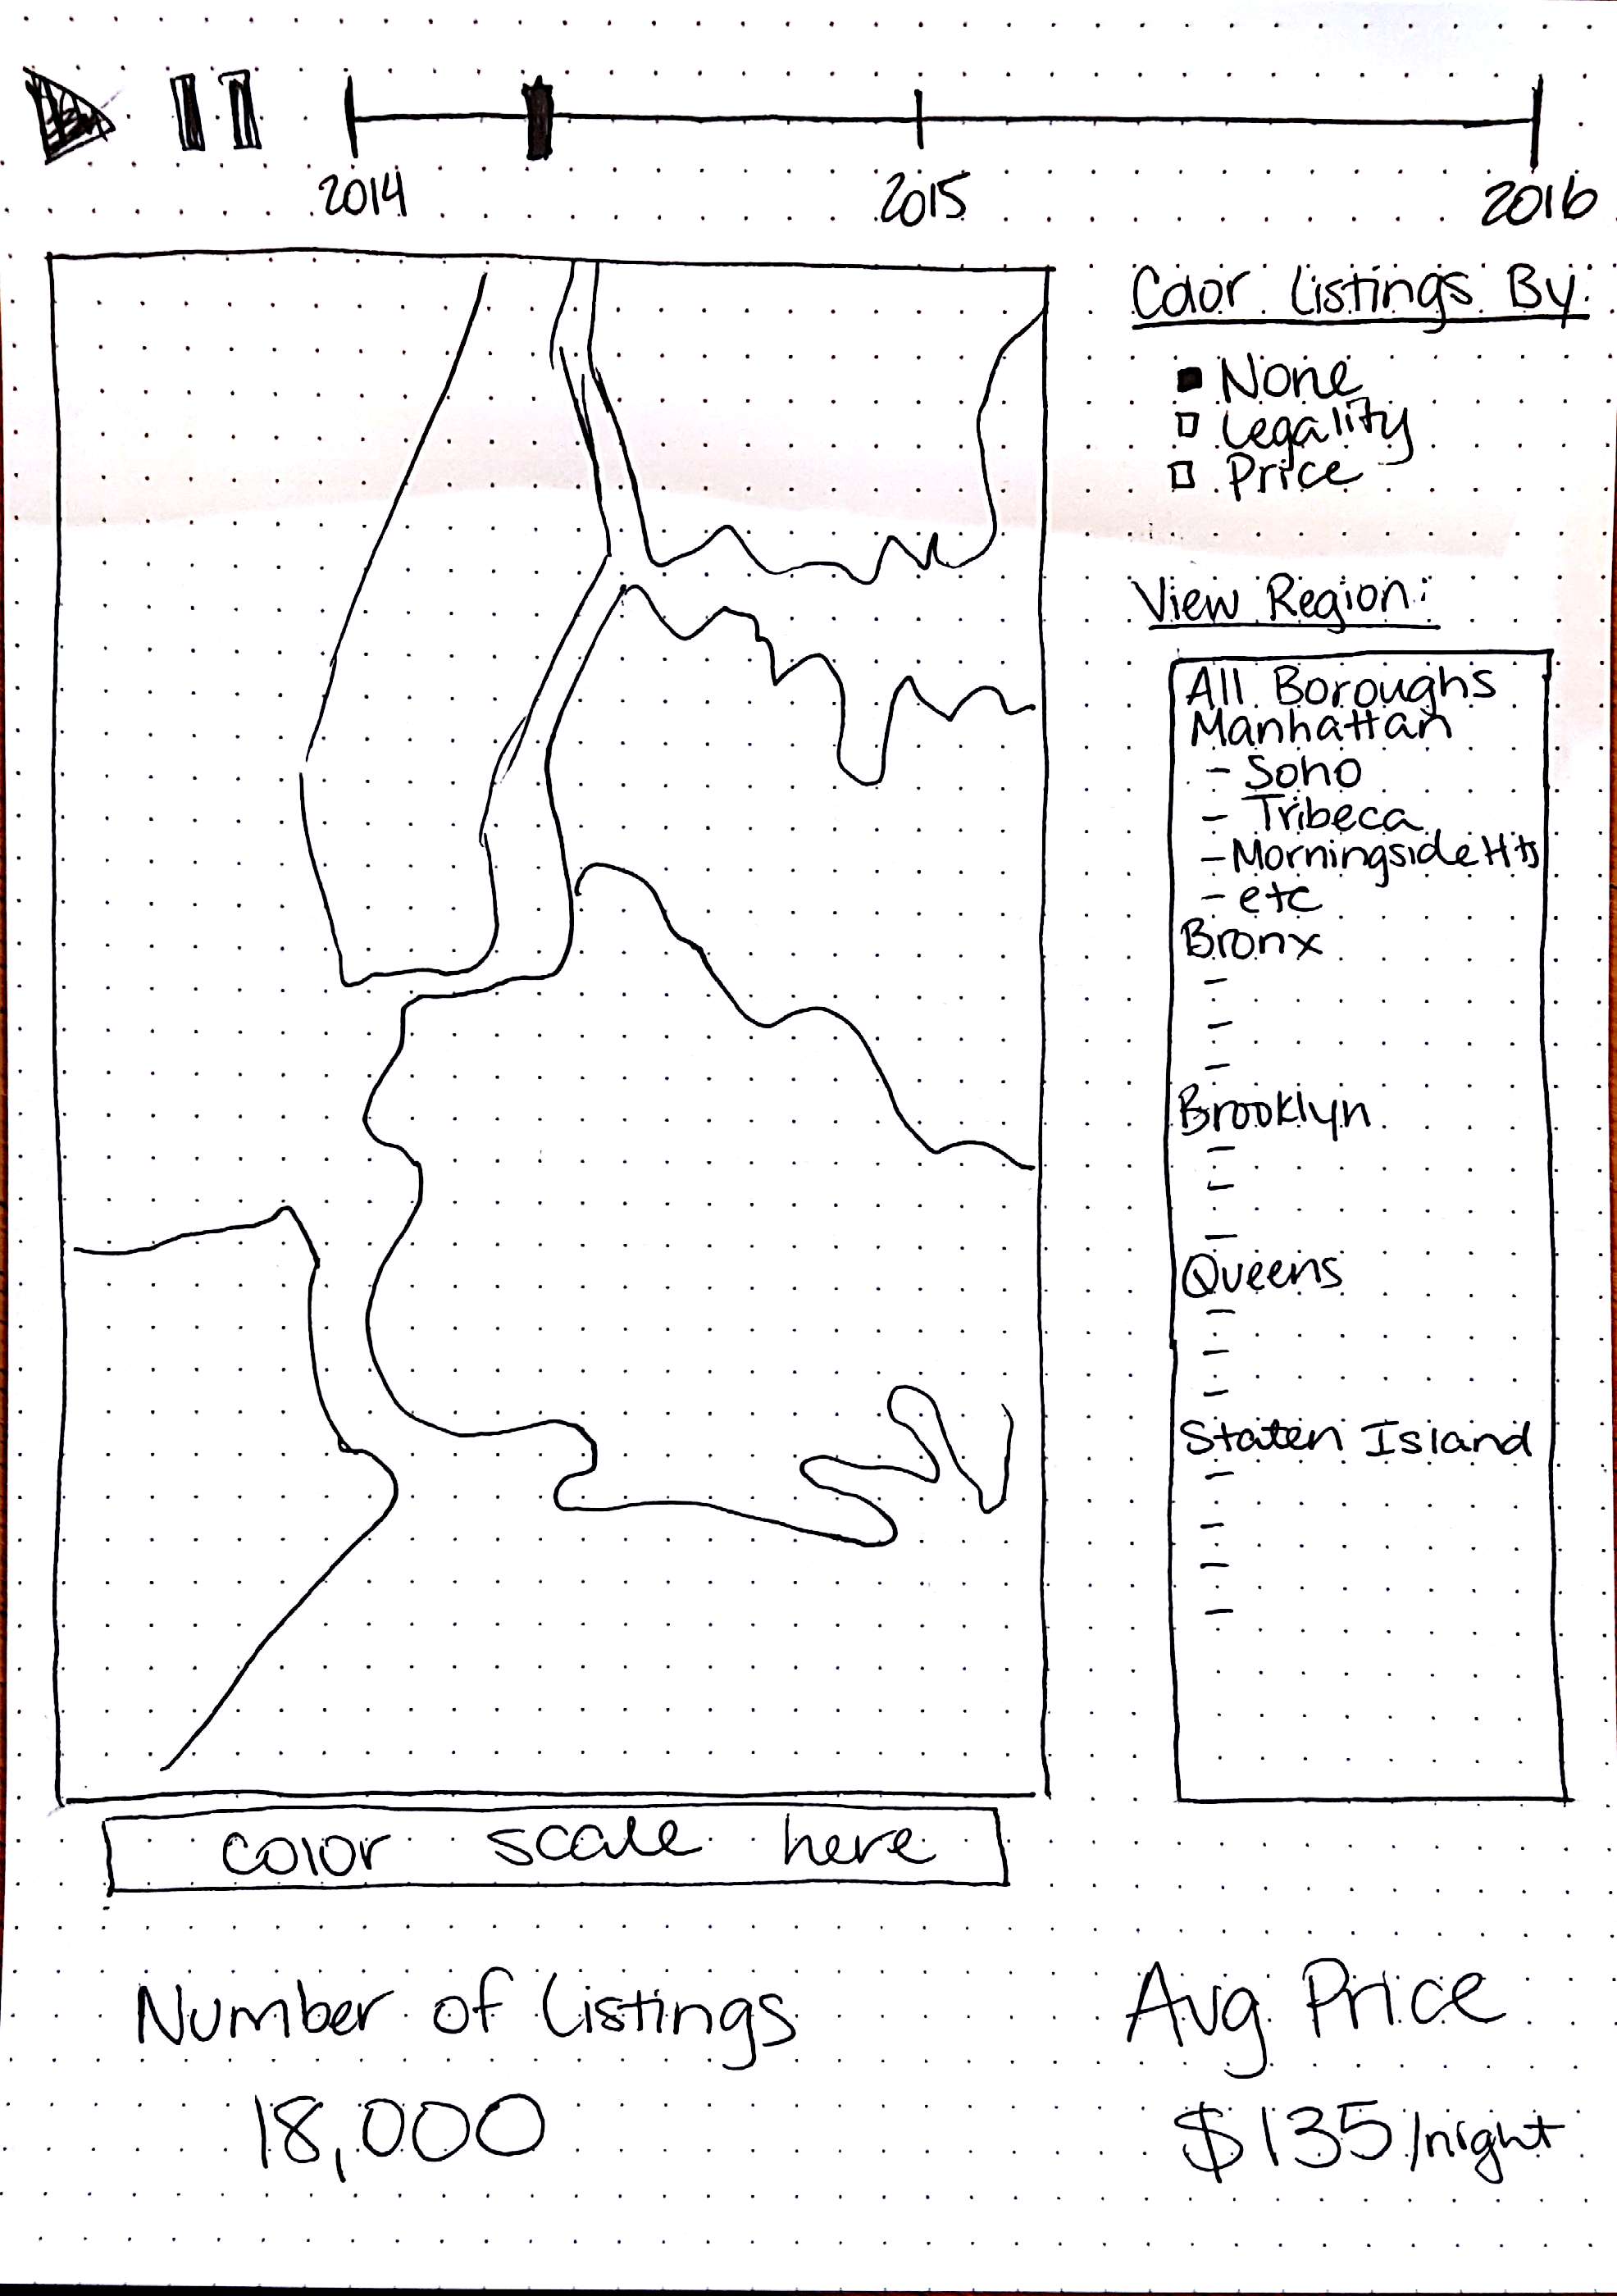 2014 2015 2016
Color Listings By:
None
Legality
Price
View Region:
All Boroughs
Manhattan
- Soho
- Tribeca
- Morningside Hts
- etc
Bronx
-
-
-
Brooklyn
-
-
-
Queens
-
-
-
Staten Island
-
-
-
-
color scale here
Number of Listings
18,000
Avg Price
$135/night